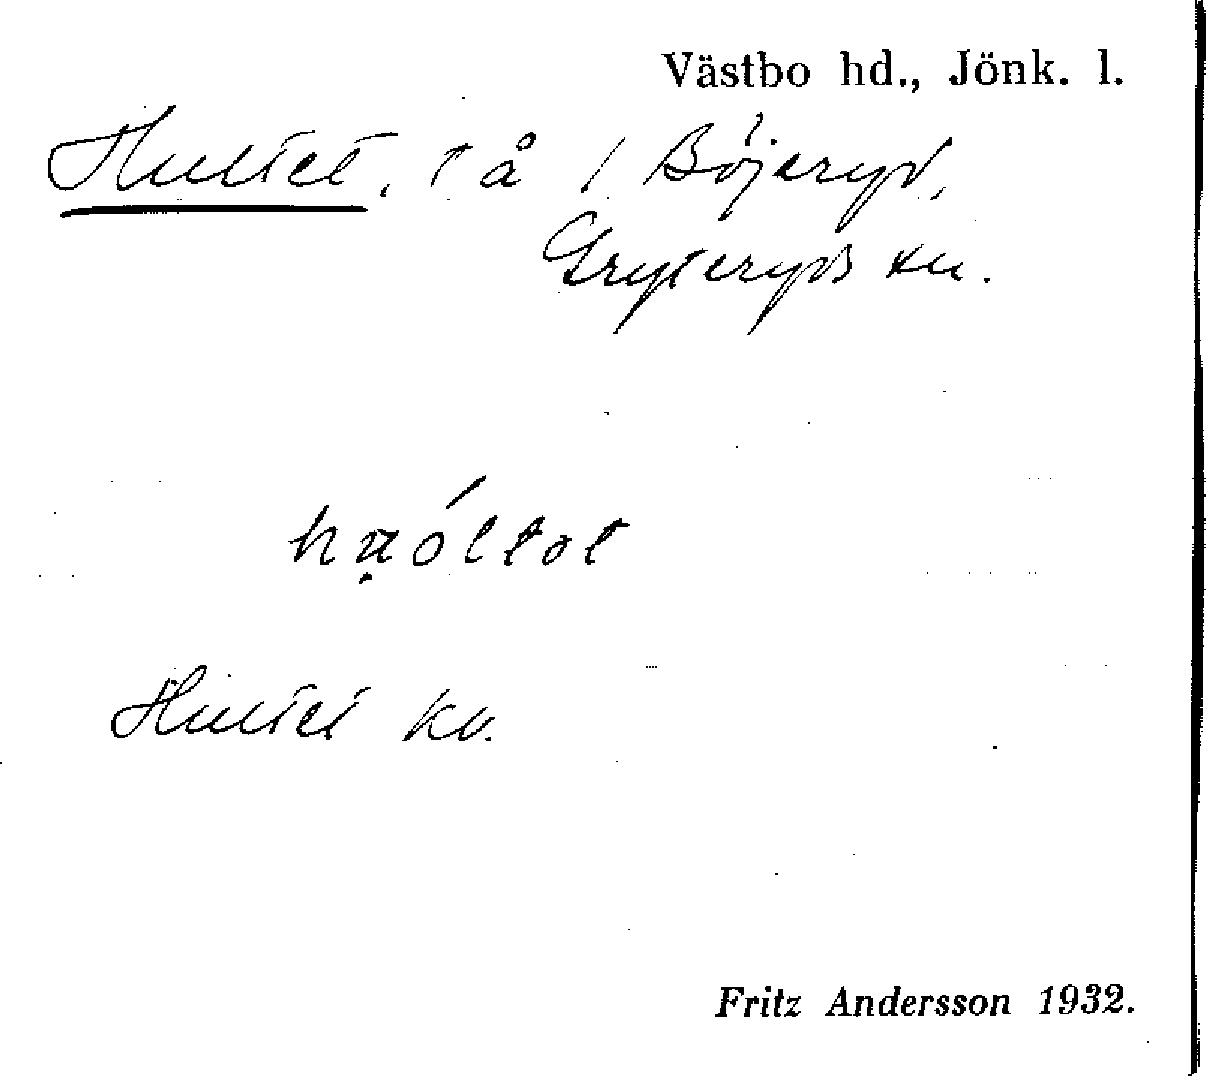 Västbo hd., Jönk. l.
Hultet, tå i Böjeryd,
Gryteryds sn.
Hultet kv.
Fritz Andersson 1932.